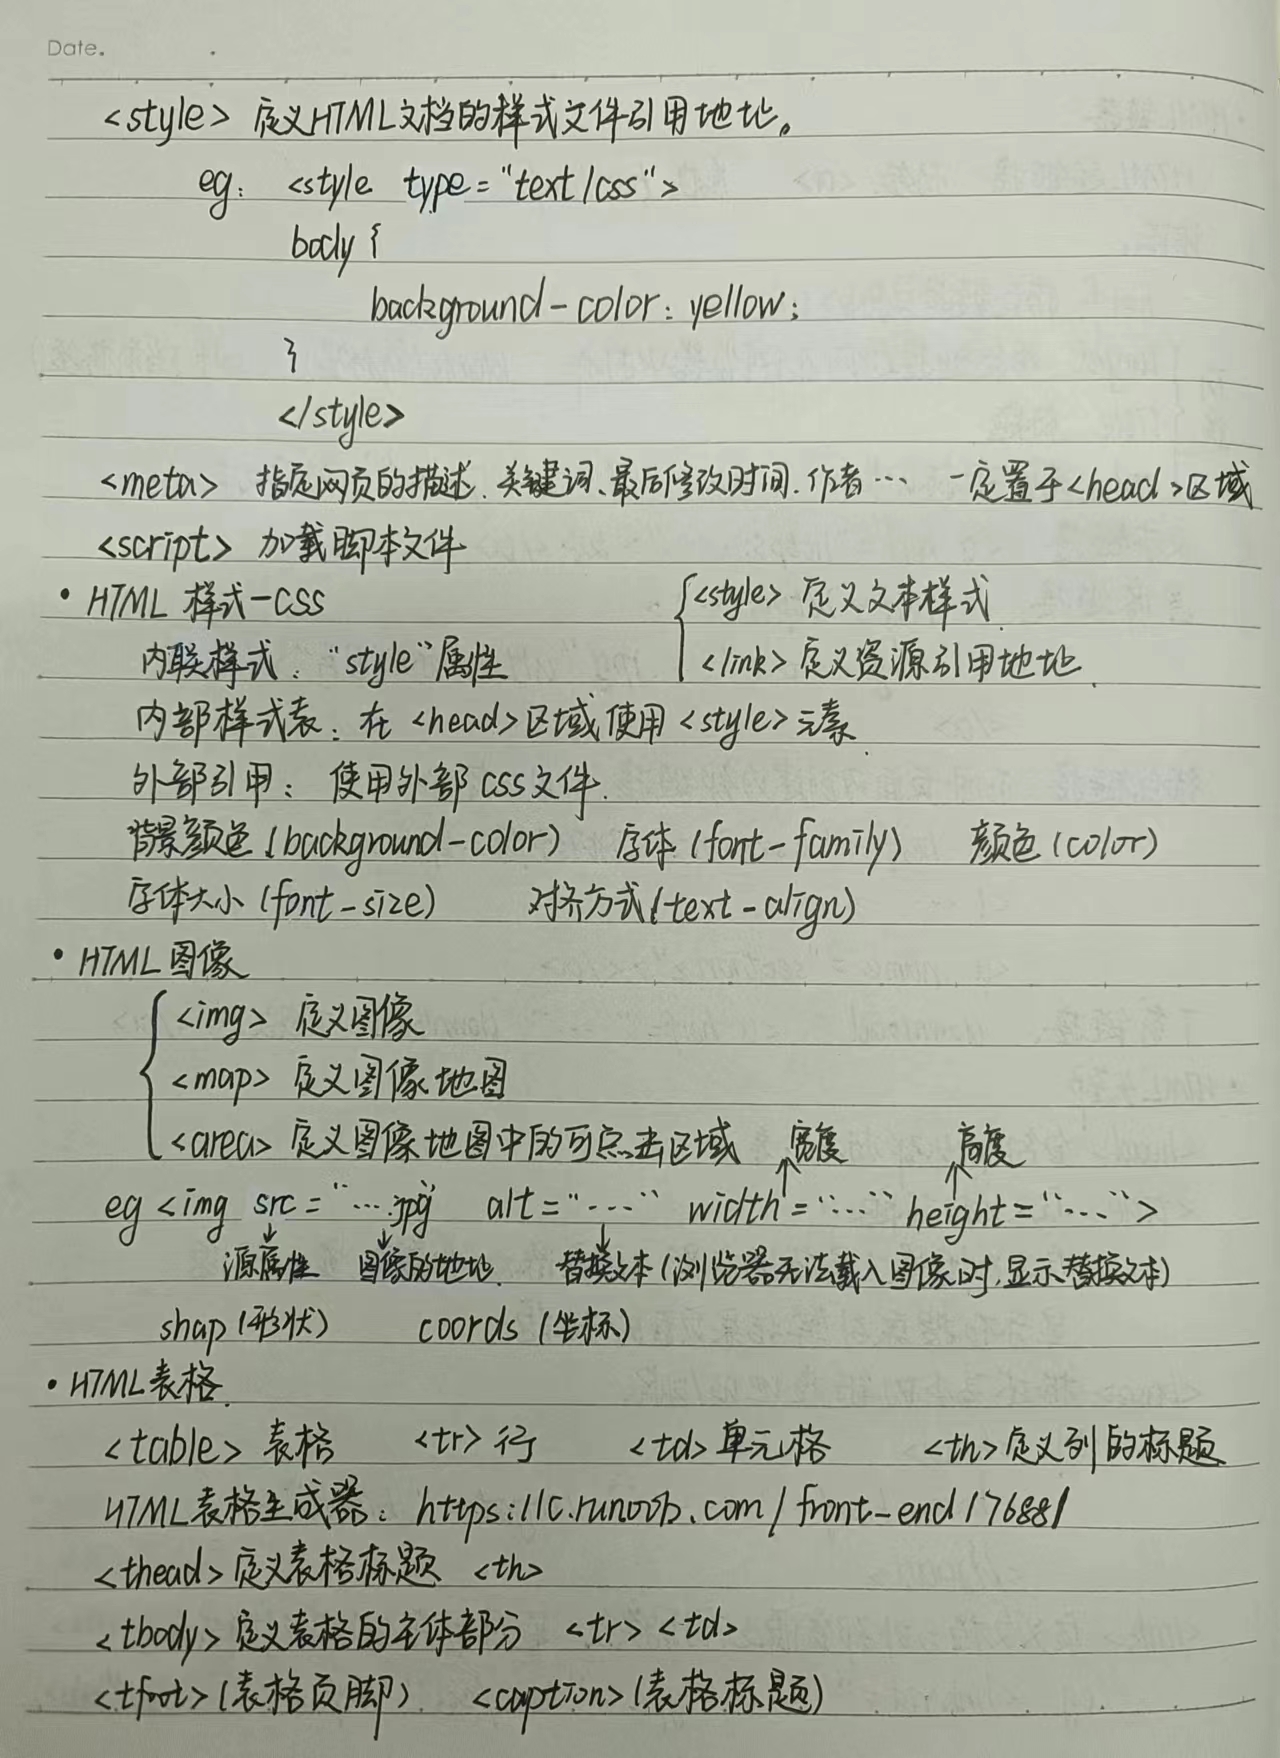 Date.
<style> 定义HTML文档的样式文件引用地址。
eg: <style type="text/css">
body {
background-color: yellow;
}
</style>
<meta> 指定网页的描述、关键词、最后修改时间、作者… 一定置于<head>区域
<script> 加载脚本文件
• HTML 样式-CSS
<style> 定义文本样式
内联样式: "style"属性
<link> 定义资源引用地址
内部样式表: 在 <head>区域使用 <style>元素
外部引用: 使用外部 css文件.
背景颜色 (background-color) 字体 (font-family) 颜色 (color)
字体大小 (font-size) 对齐方式 (text-align)
• HTML图像
<img> 定义图像
<map> 定义图像地图
<area> 定义图像地图中的可点击区域 宽度 高度
eg <img src="….jpg" alt="…" width="…" height="…">
源属性 图像的地址 替换文本(浏览器无法载入图像时,显示替换文本)
shap (形状) coords (坐标)
• HTML表格
<table> 表格 <tr> 行 <td>单元格 <th>定义列的标题
HTML表格生成器: https://c.runoob.com/front-end/7688/
<thead>定义表格标题 <th>
<tbody>定义表格的主体部分 <tr> <td>
<tfoot>(表格页脚) <caption>(表格标题)